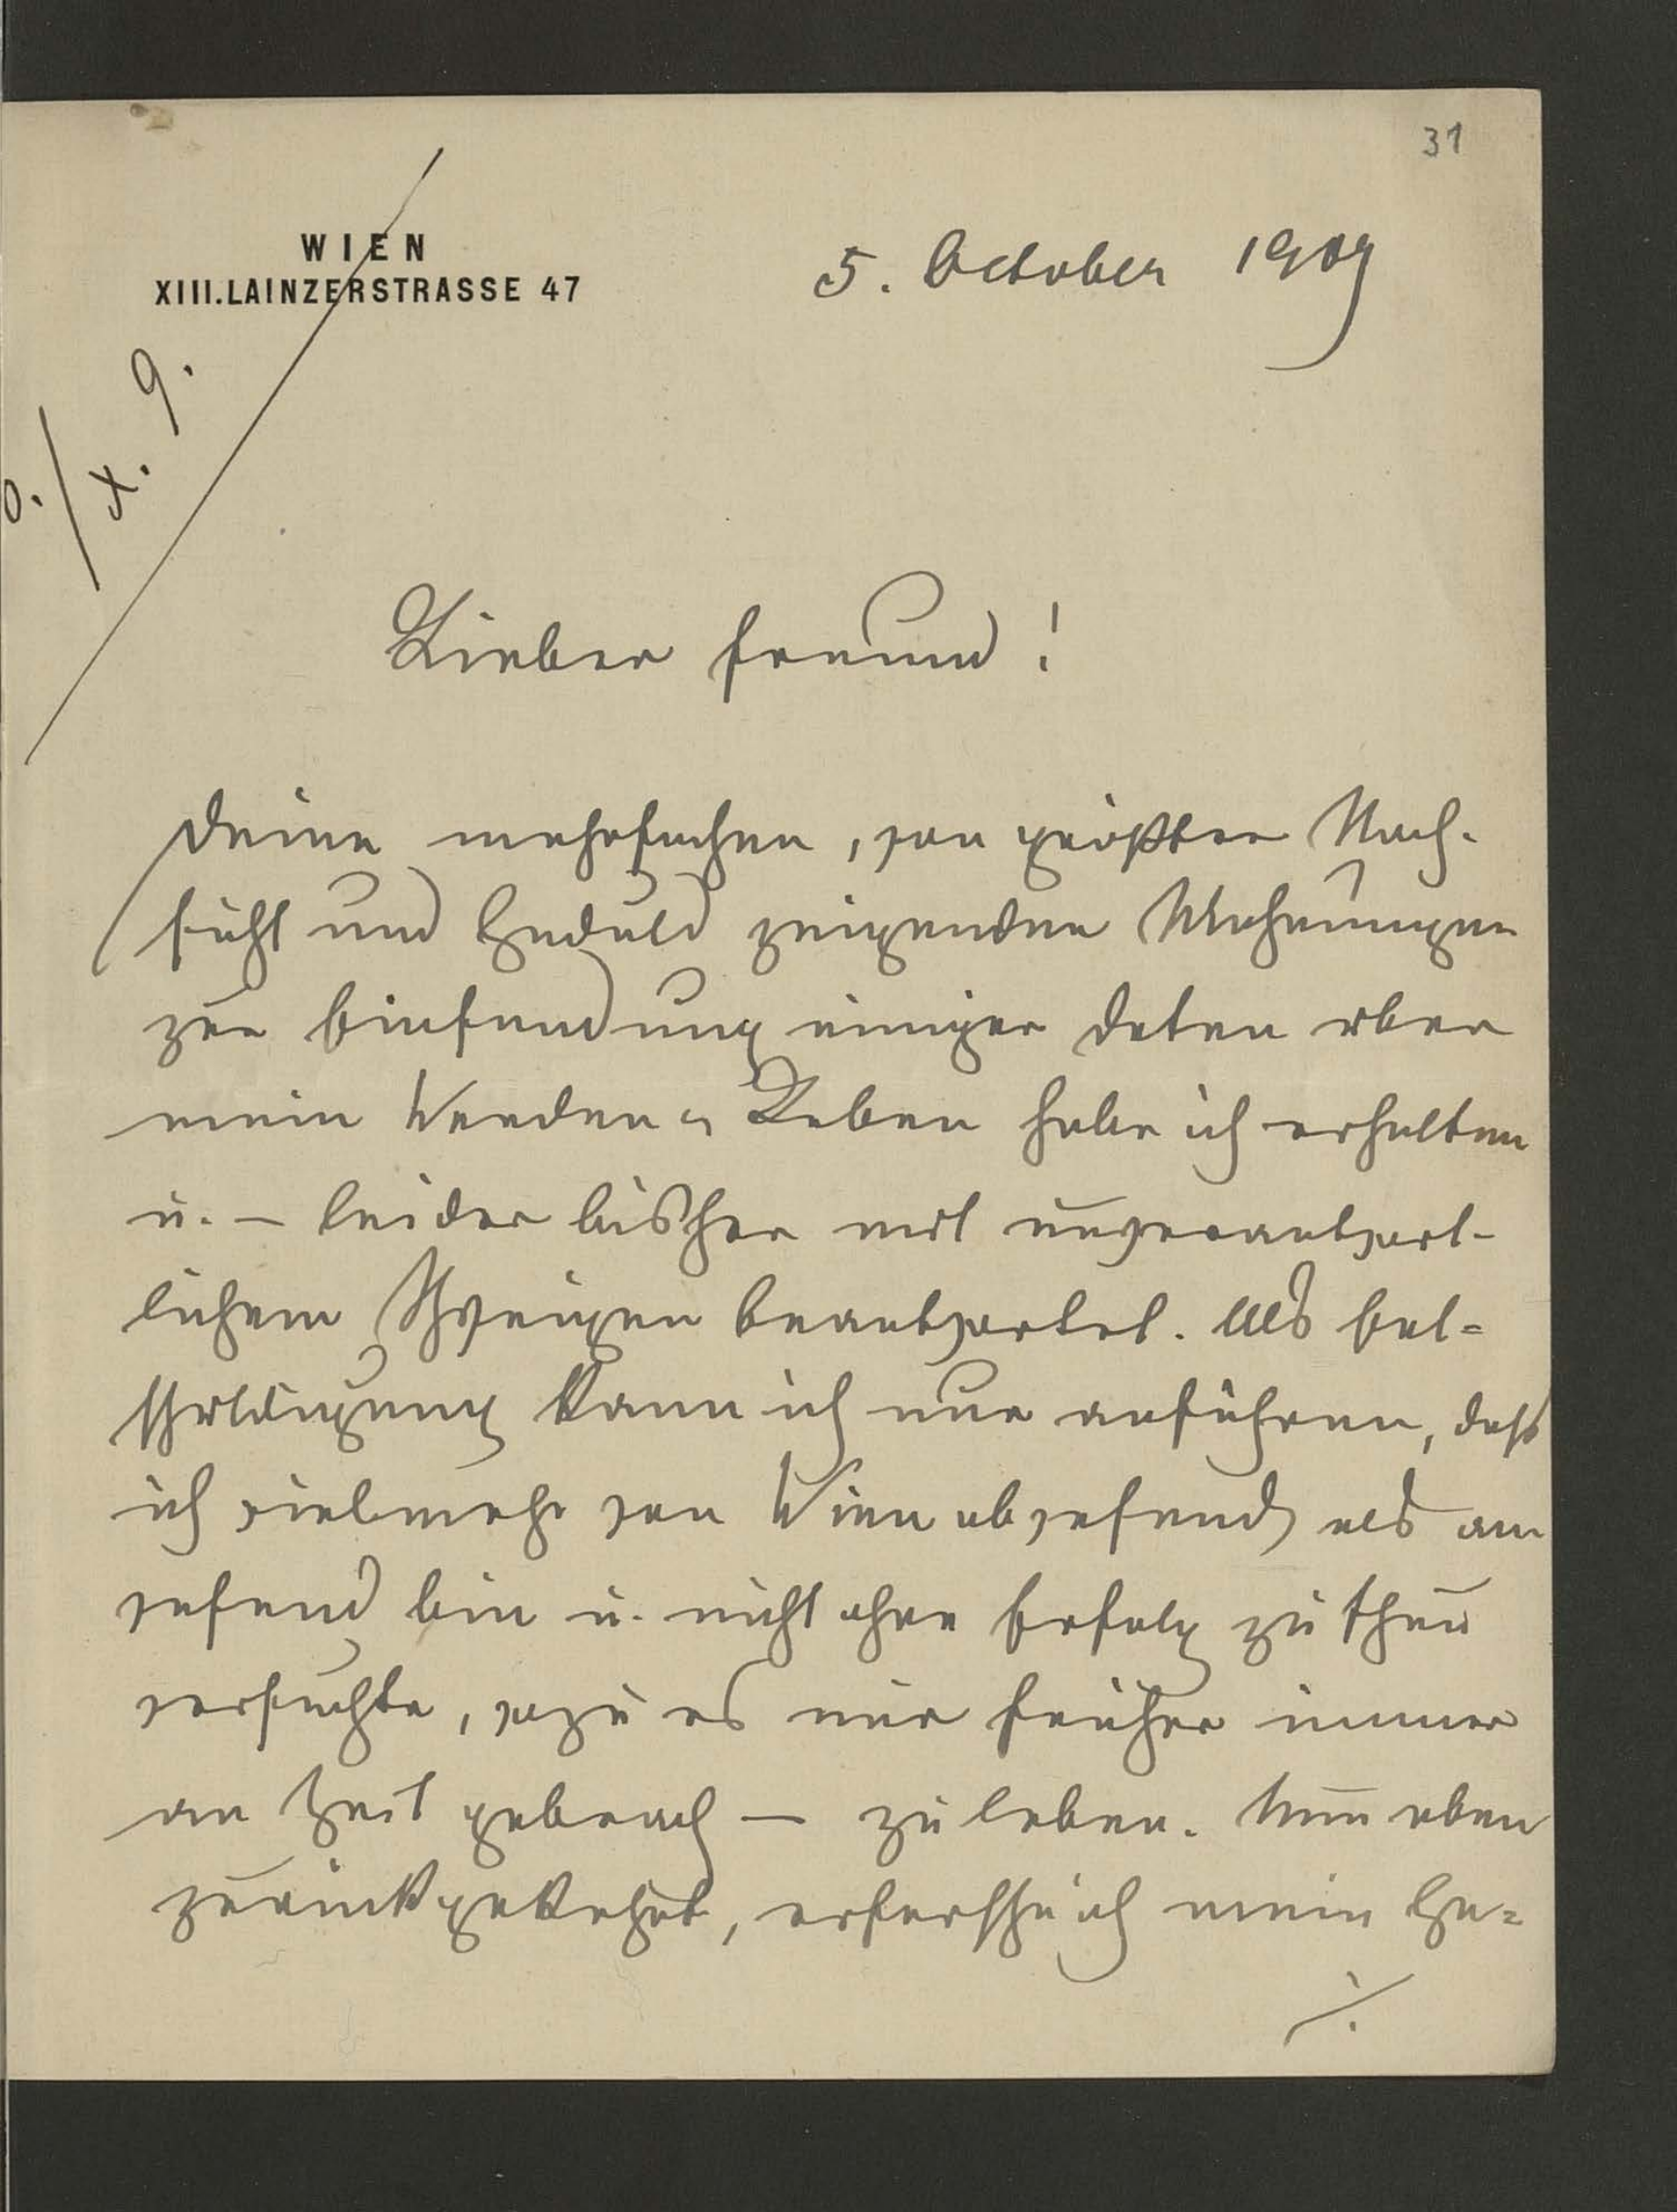 31
WIEN
XIII.LAINZERSTRASSE 47
5. October 1909
X. 9.
Lieber Freund!
Deine mehrfachen, von größter Nach-
sicht und Geduld zeigenden Mahnungen
zur Einsendung einiger Daten über
mein Werden u Leben habe ich erhalten
u. – leider bisher mit unverantwort-
lichem Schweigen beantwortet. Als Ent=
schuldigung kann ich nur anführen, daß
ich vielmehr von Wien abwesend als an
wesend bin u. nicht ohne Erfolg zu thun
versuchte, wozu es mir früher immer
an Zeit gebrach – zu leben. Nun eben
zurückgekehrt, erforsche ich mein Ge=
./.